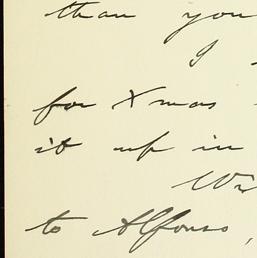 than you
I
for Xmas
it up in
Wi
to Alfonso,